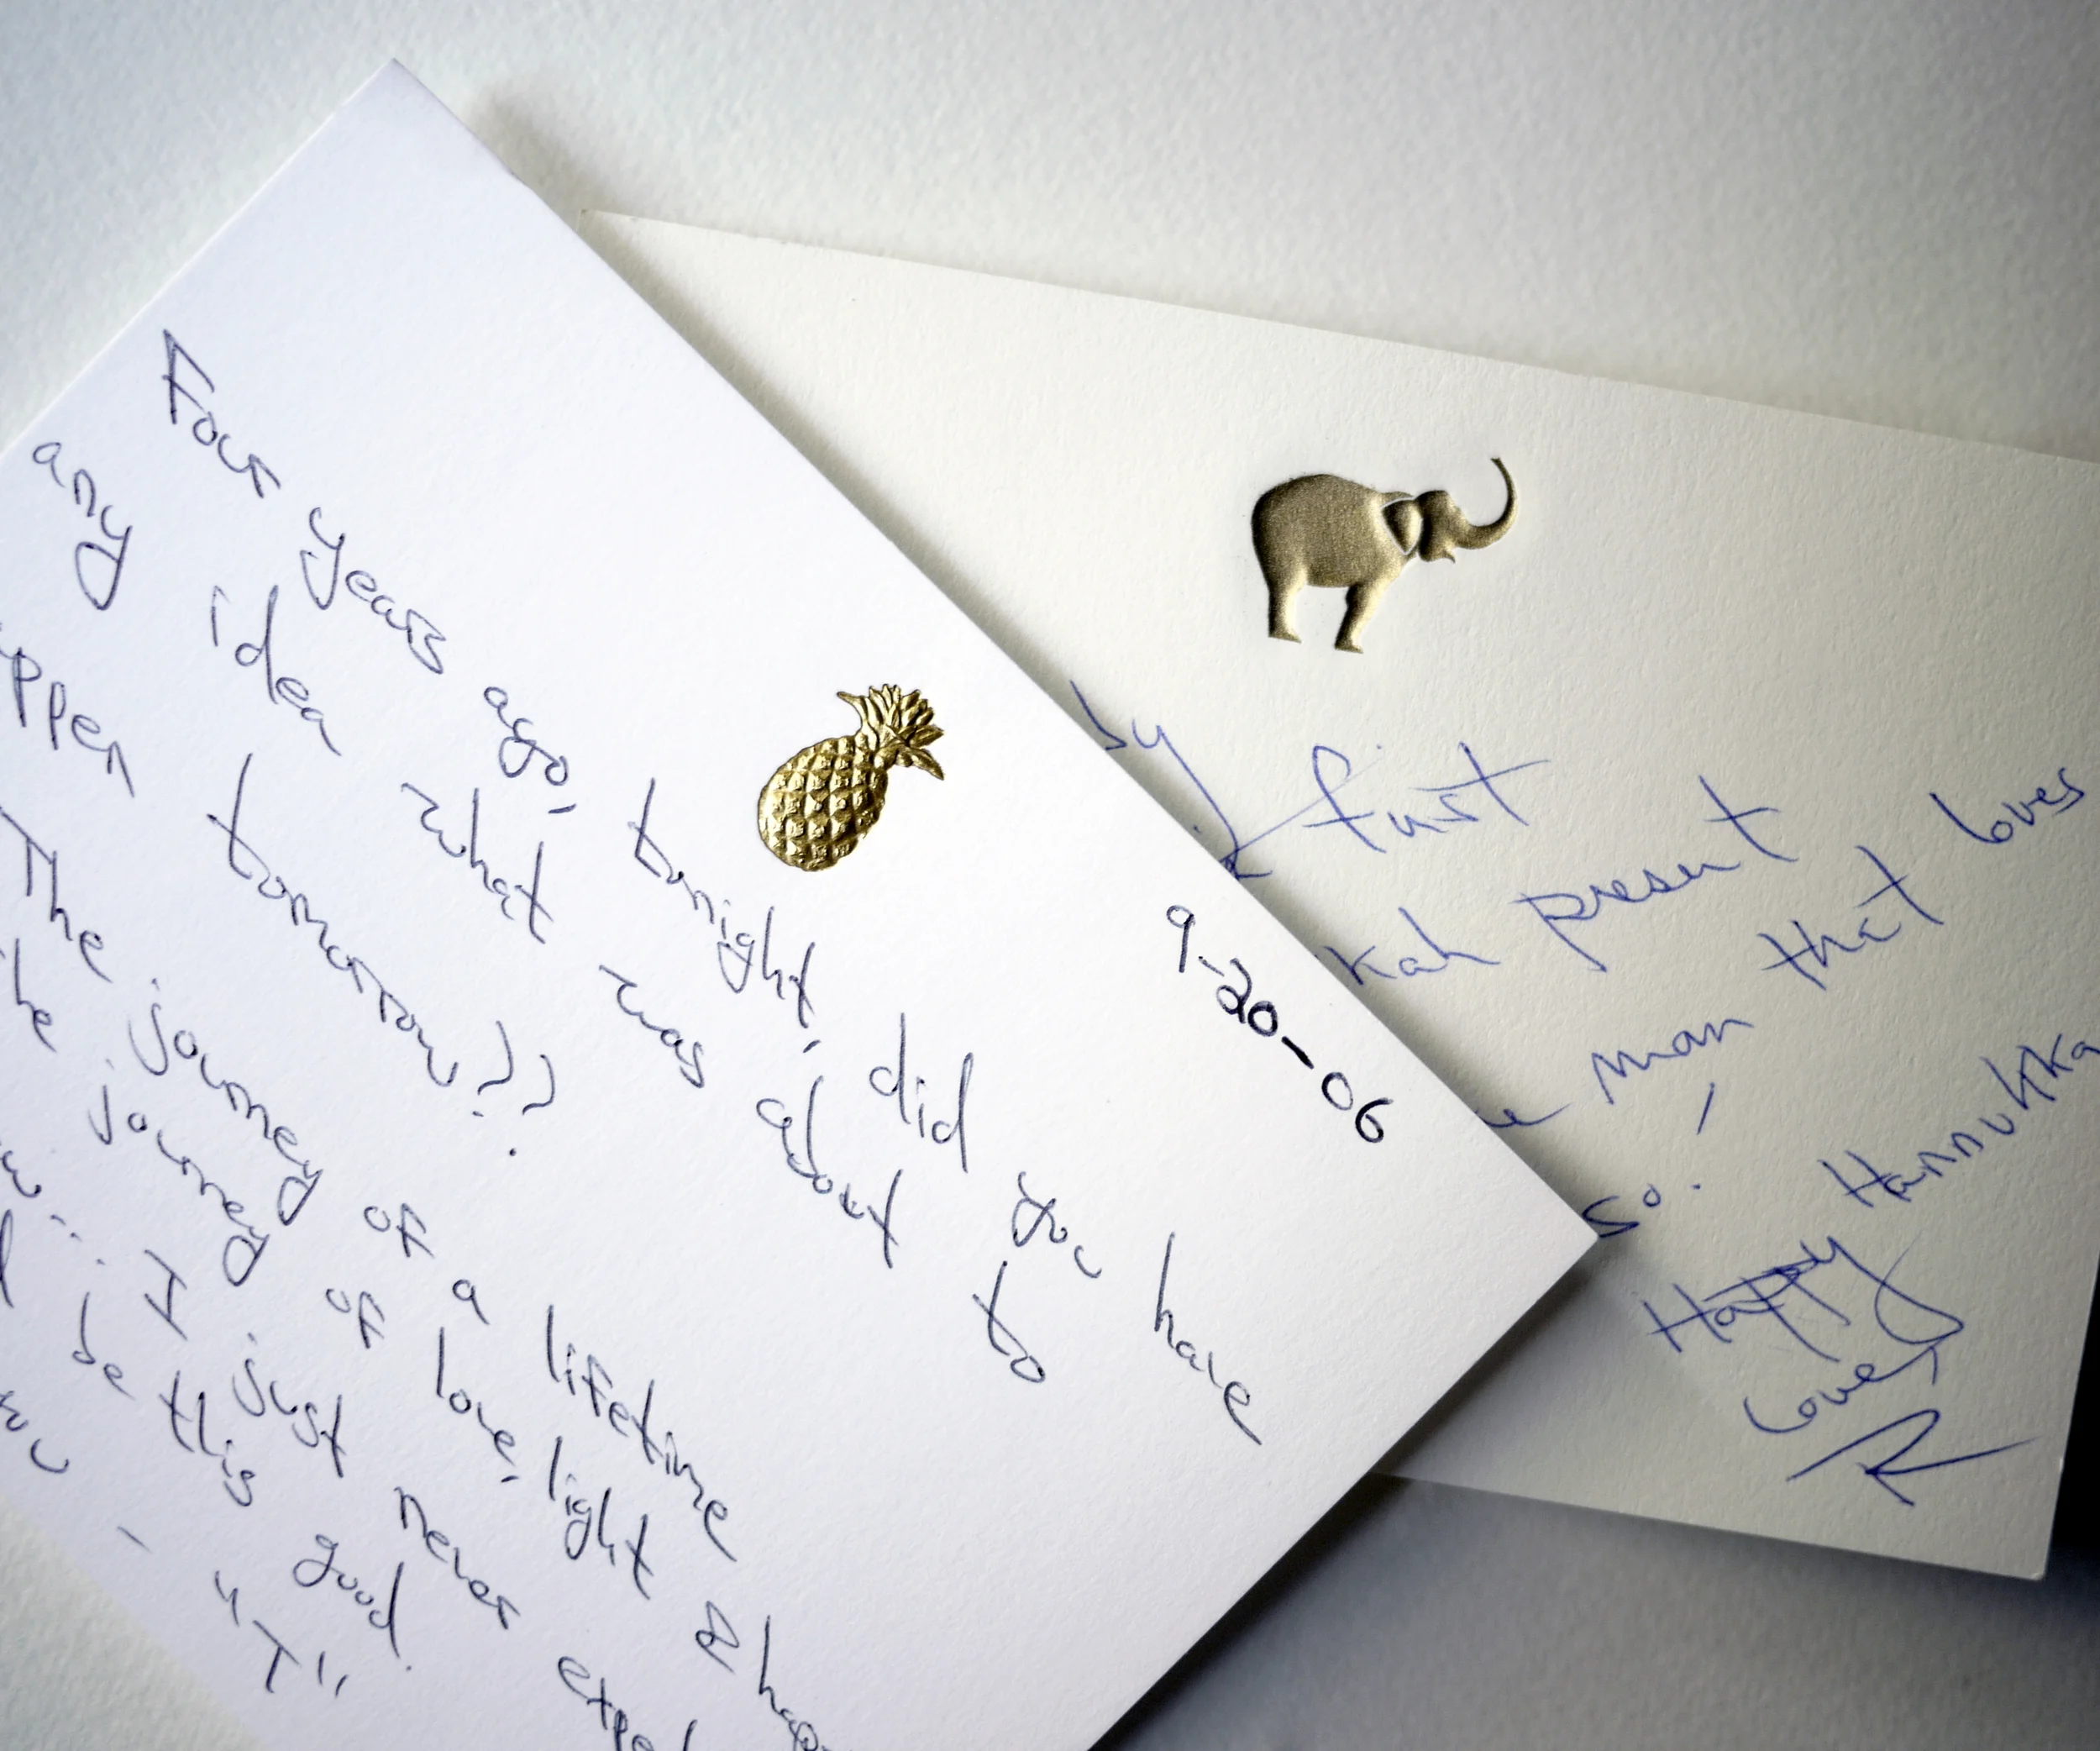 9-20-06
Four years ago, tonight, did you have
any idea what was about to
tomorrow??
The journey of a lifetime
the journey of love, light &
I just never
be this good.
you
- "I"
first
present
man that loves
so!
Happy Hannukka
Love,
R